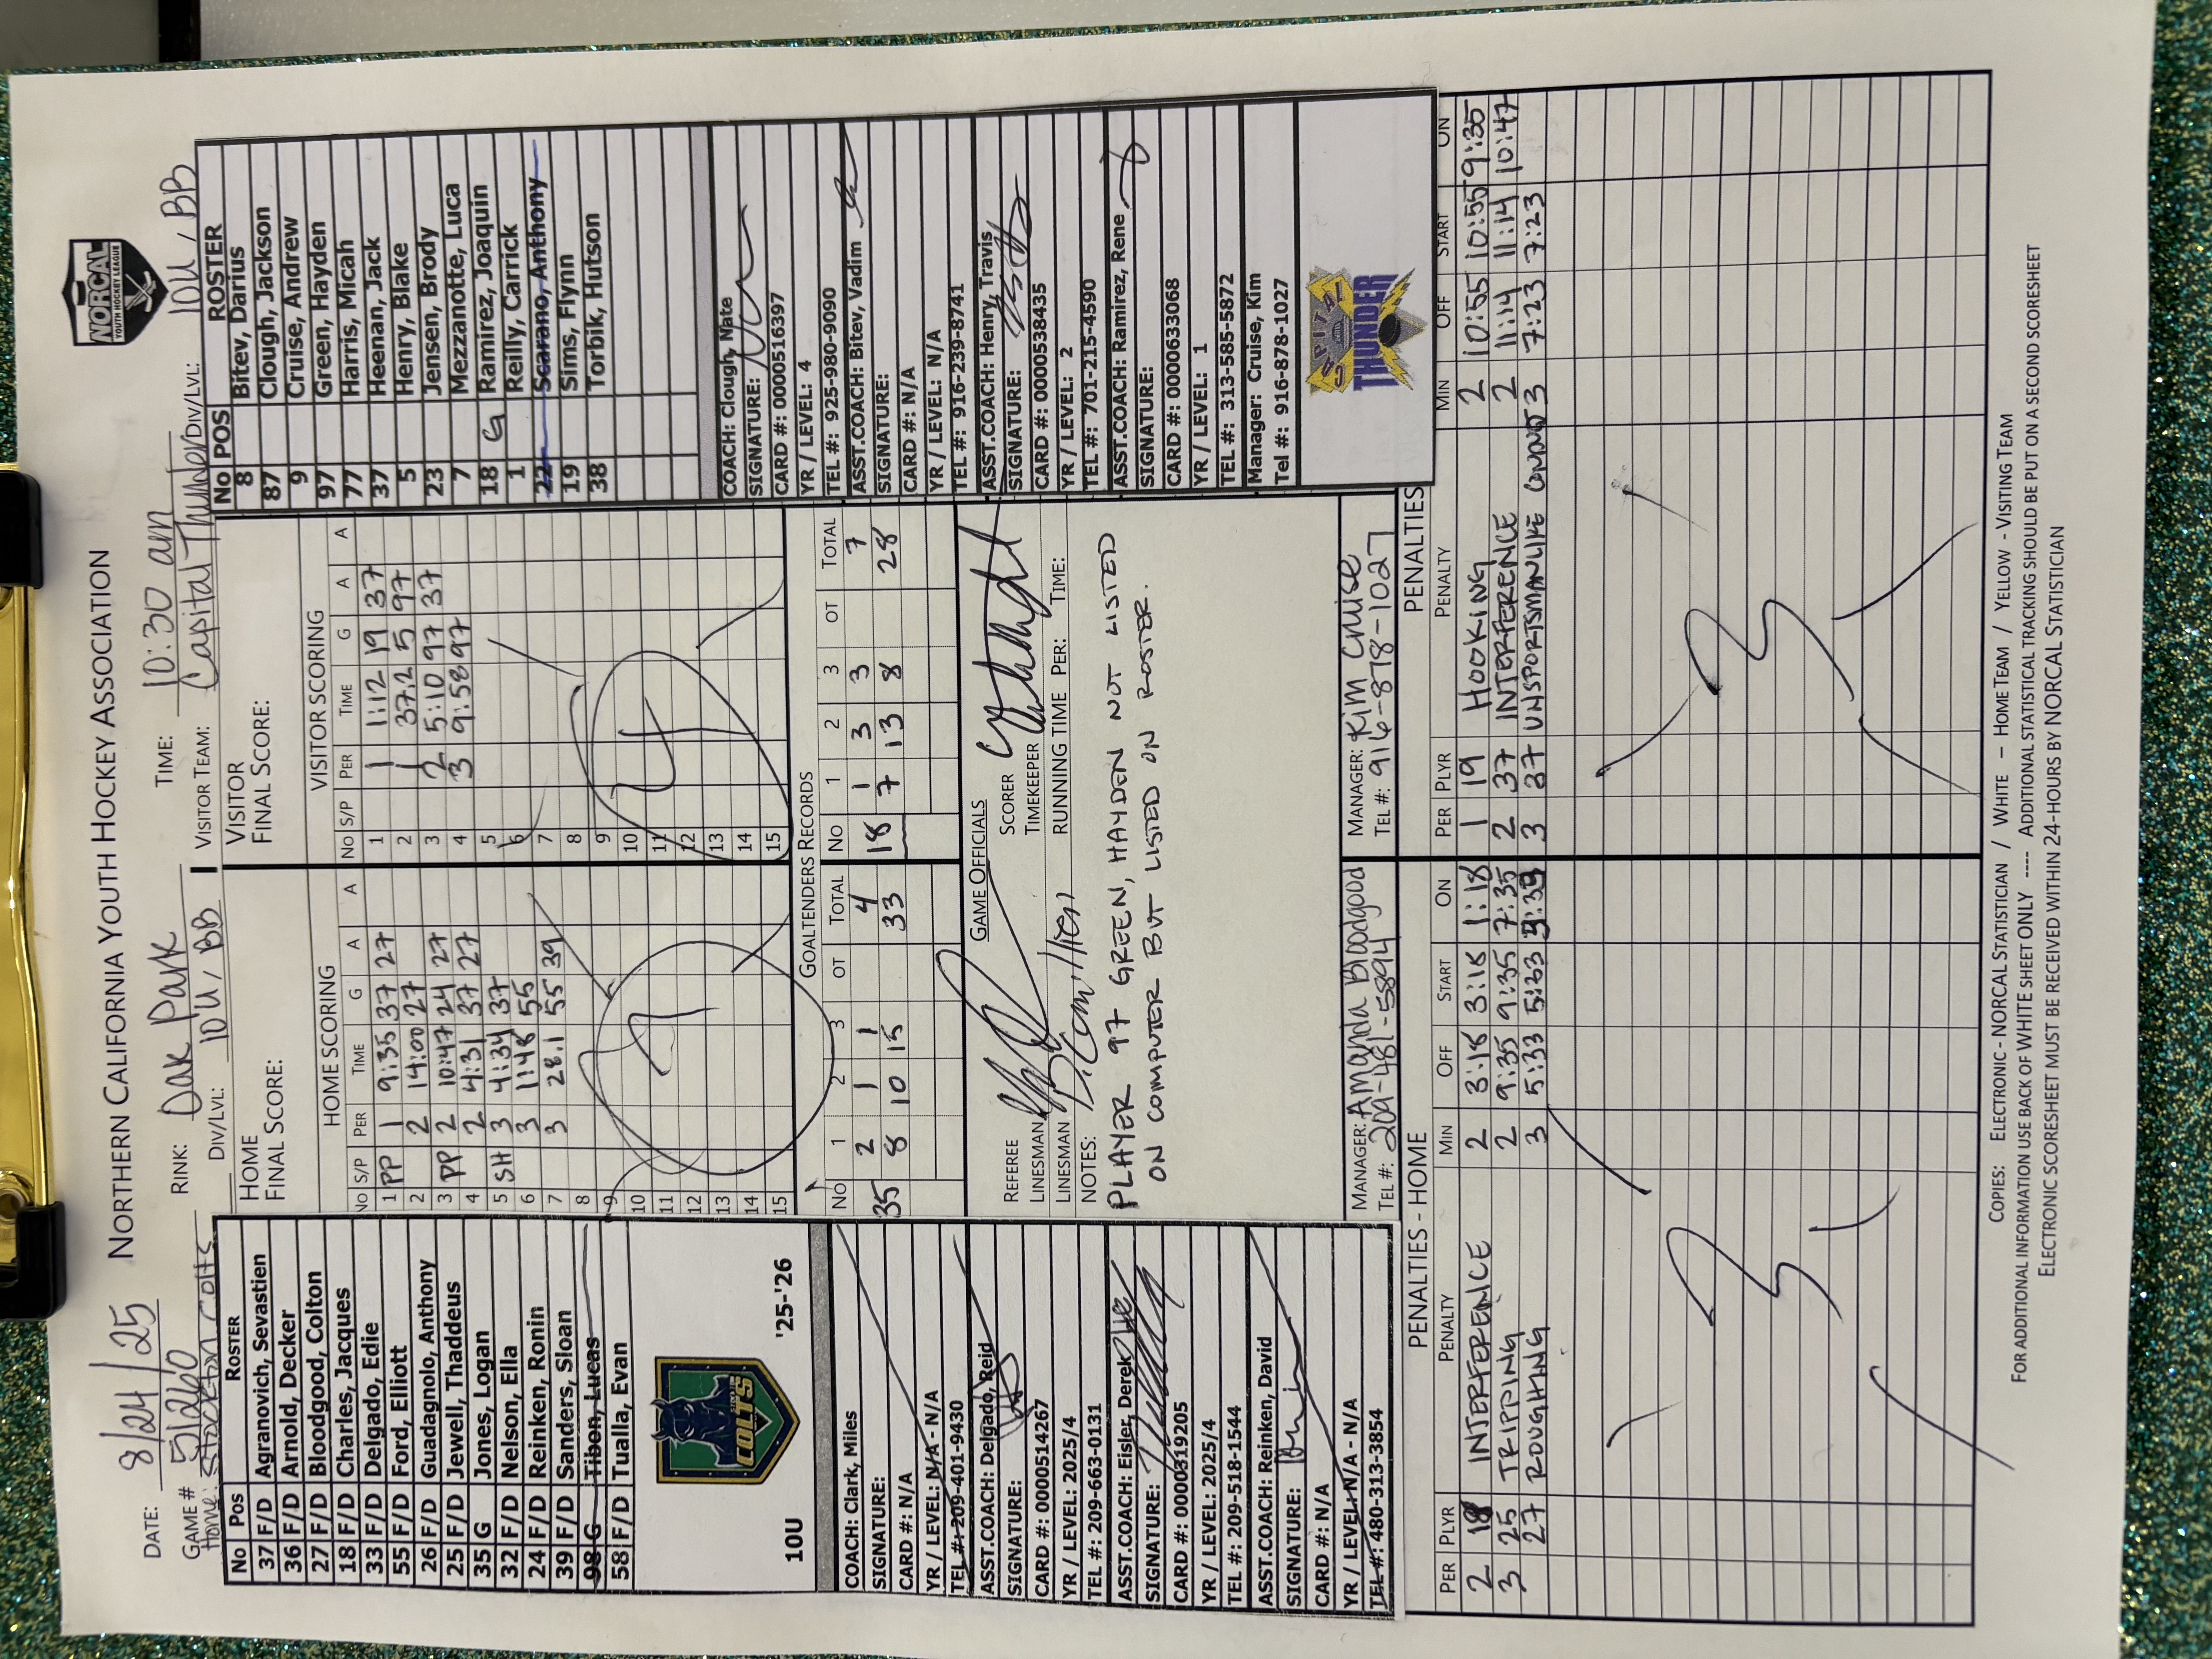 NORTHERN CALIFORNIA YOUTH HOCKEY ASSOCIATION
NORCAL
YOUTH HOCKEY LEAGUE
DATE: 8/24/25 RINK: Oak Park TIME: 10:30 am
GAME # 51260 DIV/LVL: 10U/BB VISITOR TEAM: Capital Thunder DIV/LVL: 10U/BB
Home: Stockton Colts
No Pos ROSTER
37 F/D Agranovich, Sevastien
36 F/D Arnold, Decker
27 F/D Bloodgood, Colton
18 F/D Charles, Jacques
33 F/D Delgado, Edie
55 F/D Ford, Elliott
26 F/D Guadagnolo, Anthony
25 F/D Jewell, Thaddeus
35 G Jones, Logan
32 F/D Nelson, Ella
24 F/D Reinken, Ronin
39 F/D Sanders, Sloan
98 G Tibon, Lucas
58 F/D Tualla, Evan
COLTS
10U '25-'26
COACH: Clark, Miles
SIGNATURE:
CARD #: N/A
YR / LEVEL: N/A - N/A
TEL #: 209-401-9430
ASST.COACH: Delgado, Reid
SIGNATURE:
CARD #: 0000514267
YR / LEVEL: 2025/4
TEL #: 209-663-0131
ASST.COACH: Eisler, Derek
SIGNATURE:
CARD #: 0000319205
YR / LEVEL: 2025/4
TEL #: 209-518-1544
ASST.COACH: Reinken, David
SIGNATURE:
CARD #: N/A
YR / LEVEL: N/A - N/A
TEL #: 480-313-3854
HOME
FINAL SCORE:
HOME SCORING
No S/P PER TIME G A A
1 PP 1 9:35 37 27
2 2 14:00 27
3 PP 2 10:47 24 27
4 2 4:31 37 27
5 SH 3 4:34 37
6 3 1:48 55
7 3 28.1 55 39
8
9
10
11
12
13
14
15
7
VISITOR
FINAL SCORE:
VISITOR SCORING
No S/P PER TIME G A A
1 1 1:12 19 37
2 1 37.2 5 97
3 2 5:10 97 37
4 3 9:58 97
5
6
7
8
9
10
11
12
13
14
15
4
GOALTENDERS RECORDS
NO 1 2 3 OT TOTAL NO 1 2 3 OT TOTAL
35 2 1 1 4 18 1 3 3 7
8 10 15 33 7 13 8 28
GAME OFFICIALS
REFEREE SCORER
LINESMAN TIMEKEEPER
LINESMAN RUNNING TIME PER: TIME:
NOTES:
PLAYER 97 GREEN, HAYDEN NOT LISTED
ON COMPUTER BUT LISTED ON ROSTER.
MANAGER: Amanda Bloodgood MANAGER: Kim Cruise
TEL #: 209-481-5894 TEL #: 916-878-1027
No POS ROSTER
8 Bitev, Darius
87 Clough, Jackson
9 Cruise, Andrew
97 Green, Hayden
77 Harris, Micah
37 Heenan, Jack
5 Henry, Blake
23 Jensen, Brody
7 Mezzanotte, Luca
18 G Ramirez, Joaquin
1 Reilly, Carrick
22 Scarano, Anthony
19 Sims, Flynn
38 Torbik, Hutson
COACH: Clough, Nate
SIGNATURE:
CARD #: 0000516397
YR / LEVEL: 4
TEL #: 925-980-9090
ASST.COACH: Bitev, Vadim
SIGNATURE:
CARD #: N/A
YR / LEVEL: N/A
TEL #: 916-239-8741
ASST.COACH: Henry, Travis
SIGNATURE:
CARD #: 0000538435
YR / LEVEL: 2
TEL #: 701-215-4590
ASST.COACH: Ramirez, Rene
SIGNATURE:
CARD #: 0000633068
YR / LEVEL: 1
TEL #: 313-585-5872
Manager: Cruise, Kim
Tel #: 916-878-1027
CAPITAL
THUNDER
PENALTIES - HOME
PER PLYR PENALTY MIN OFF START ON
2 18 INTERFERENCE 2 3:18 3:18 1:18
3 25 TRIPPING 2 9:35 9:35 7:35
27 ROUGHING 3 5:33
PENALTIES
PER PLYR PENALTY MIN OFF START ON
1 19 HOOKING 2 10:55 10:55 9:35
2 37 INTERFERENCE 2 11:14 11:14 10:47
3 37 UNSPORTSMANLIKE COND 3 7:23 7:23
COPIES: ELECTRONIC - NORCAL STATISTICIAN / WHITE – HOME TEAM / YELLOW - VISITING TEAM
FOR ADDITIONAL INFORMATION USE BACK OF WHITE SHEET ONLY ---- ADDITIONAL STATISTICAL TRACKING SHOULD BE PUT ON A SECOND SCORESHEET
ELECTRONIC SCORESHEET MUST BE RECEIVED WITHIN 24-HOURS BY NORCAL STATISTICIAN